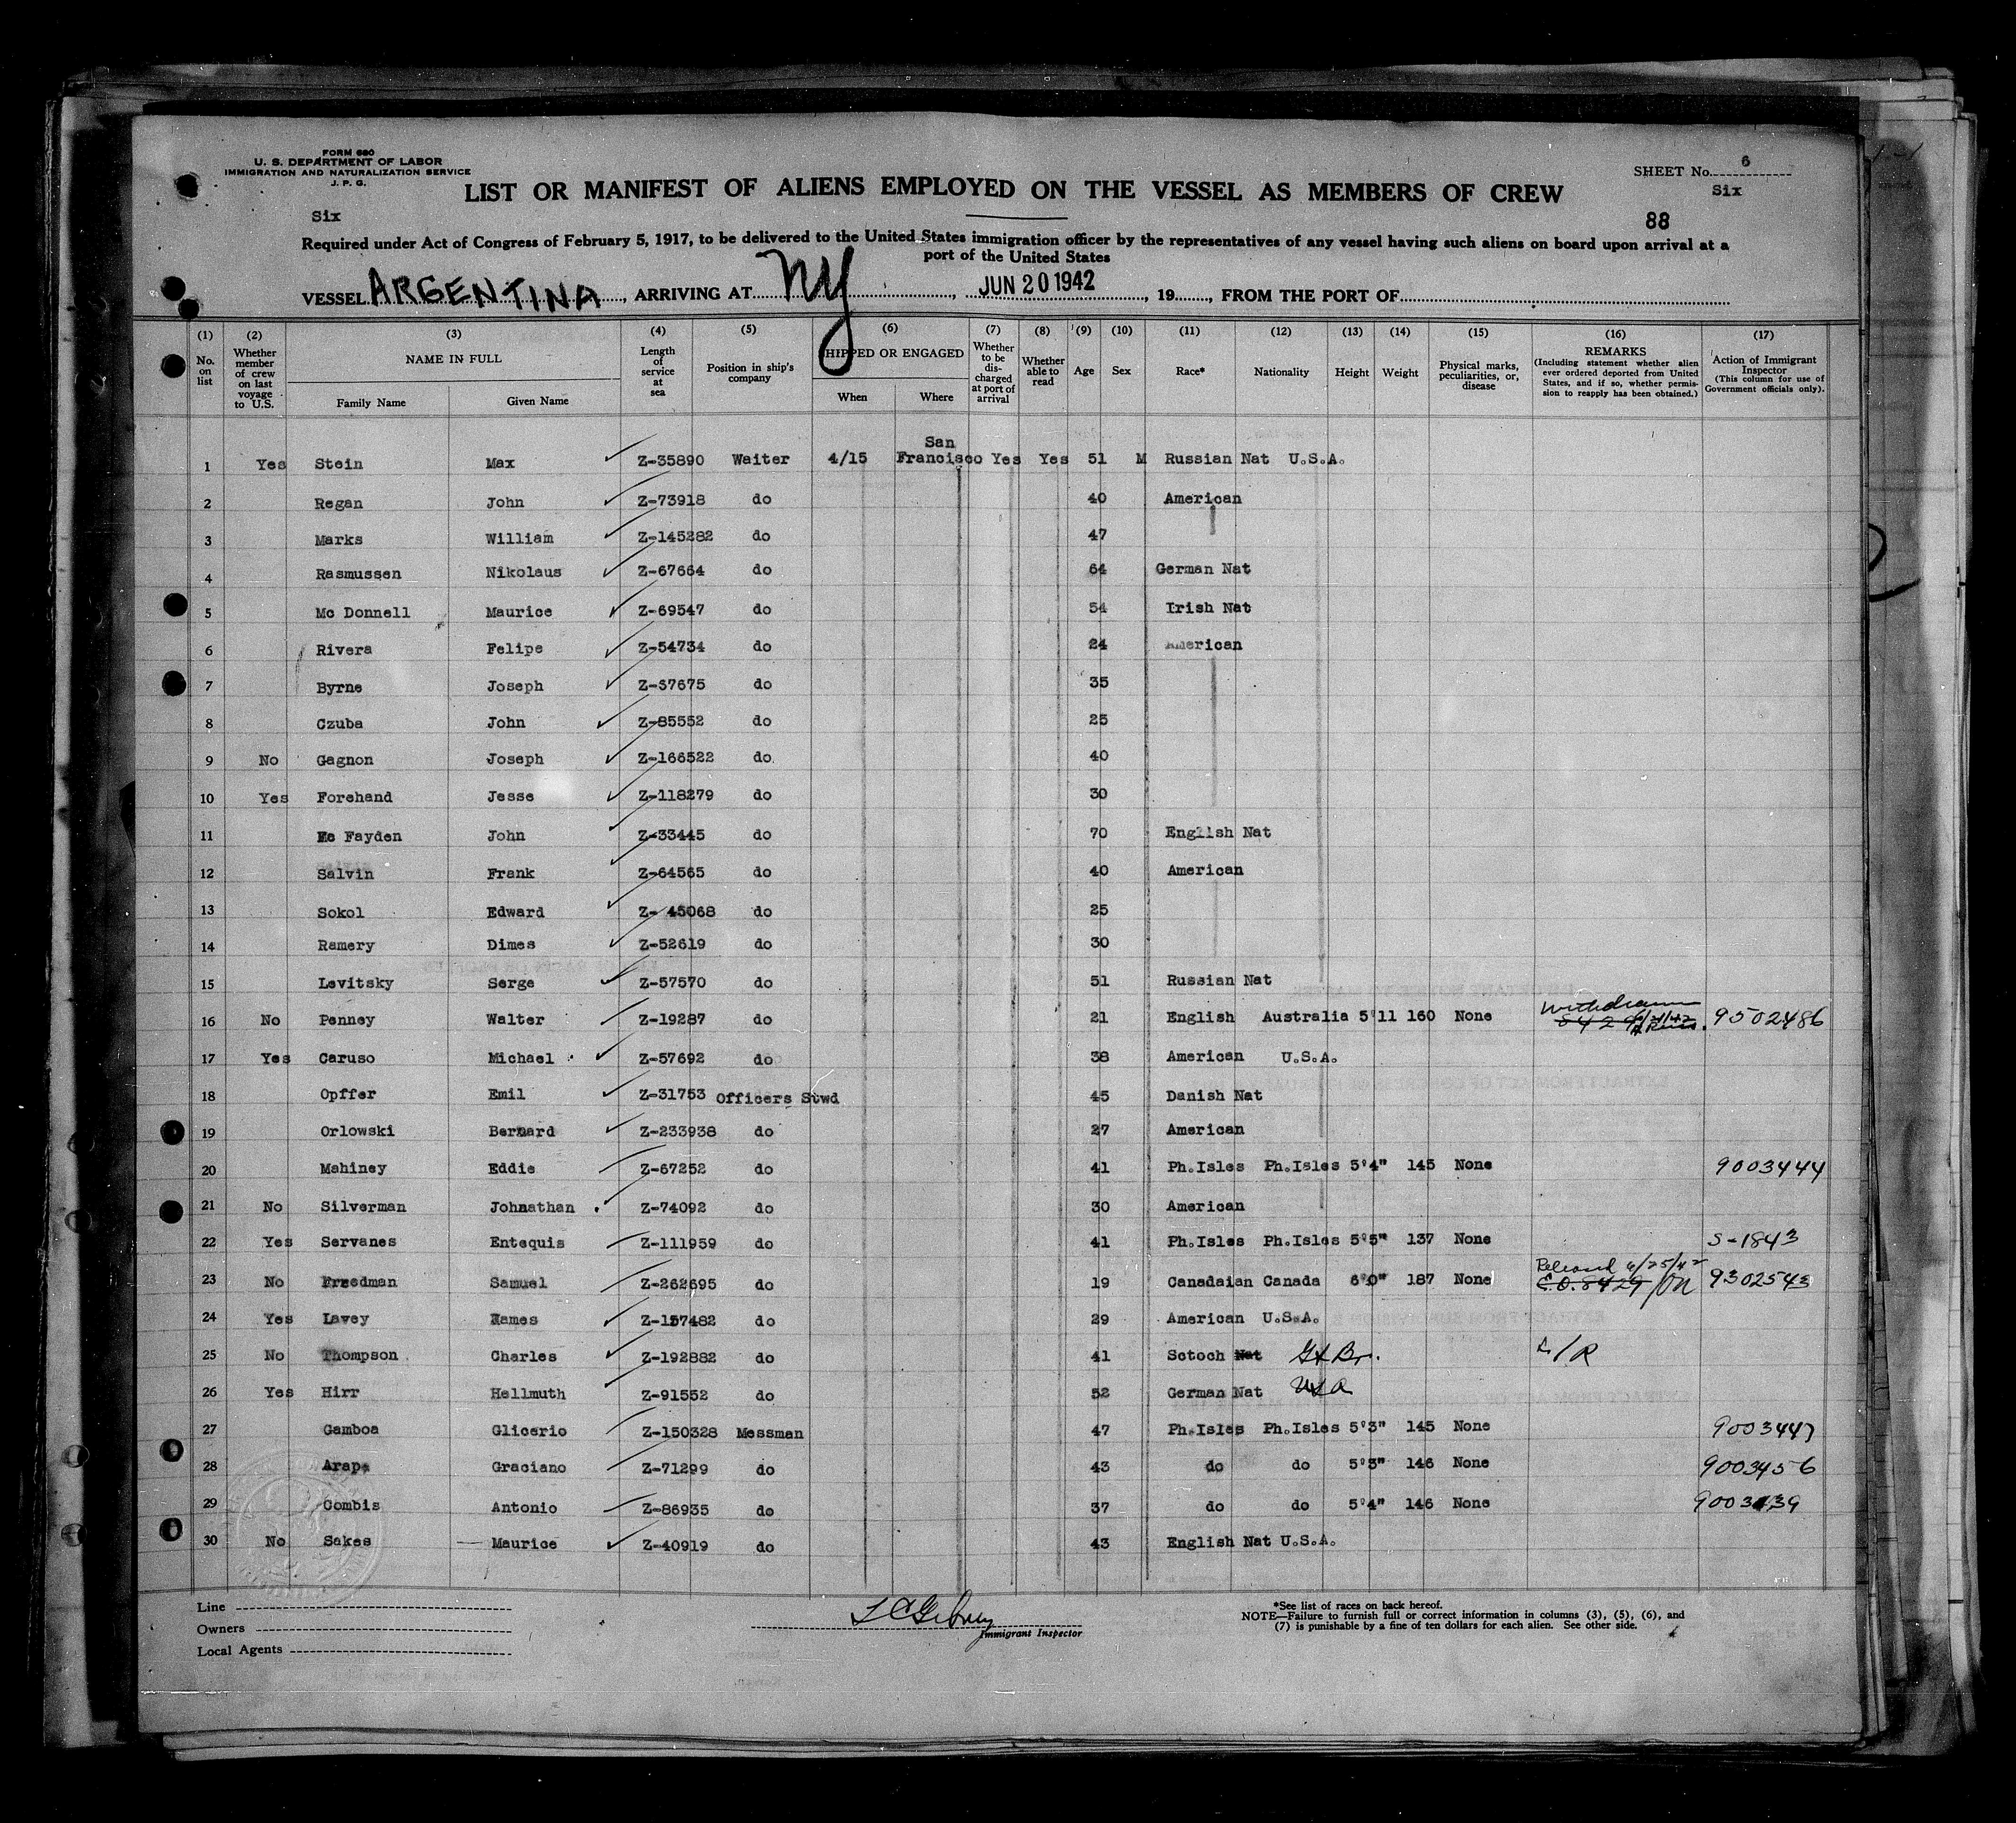 FORM 680
U. S. DEPARTMENT OF LABOR
IMMIGRATION AND NATURALIZATION SERVICE
J. P. G.
SHEET No. 6
Six
LIST OR MANIFEST OF ALIENS EMPLOYED ON THE VESSEL AS MEMBERS OF CREW
Six
88
Required under Act of Congress of February 5, 1917, to be delivered to the United States immigration officer by the representatives of any vessel having such aliens on board upon arrival at a
port of the United States
VESSEL ARGENTINA, ARRIVING AT NY, JUN 20 1942, 19, FROM THE PORT OF
(1) (2) (3) (4) (5) (6) (7) (8) (9) (10) (11) (12) (13) (14) (15) (16) (17)
No. on list
Whether member of crew on last voyage to U.S.
NAME IN FULL
Family Name Given Name
Length of service at sea
Position in ship's company
SHIPPED OR ENGAGED
When Where
Whether to be discharged at port of arrival
Whether able to read
Age
Sex
Race*
Nationality
Height
Weight
Physical marks, peculiarities, or, disease
REMARKS
(Including statement whether alien ever ordered deported from United States, and if so, whether permission to reapply has been obtained.)
Action of Immigrant Inspector
(This column for use of Government officials only).
1 Yes Stein Max Z-35890 Waiter 4/15 San Francisco Yes Yes 51 M Russian Nat U.S.A.
2 Regan John Z-73918 do 40 American
3 Marks William Z-145282 do 47
4 Rasmussen Nikolaus Z-67664 do 64 German Nat
5 Mc Donnell Maurice Z-69547 do 54 Irish Nat
6 Rivera Felipe Z-54734 do 24 American
7 Byrne Joseph Z-37675 do 35
8 Czuba John Z-85552 do 25
9 No Gagnon Joseph Z-166522 do. 40
10 Yes Forehand Jesse Z-118279 do 30
11 Mc Fayden John Z-33445 do 70 English Nat
12 Salvin Frank Z-64565 do 40 American
13 Sokol Edward Z- 45068 do 25
14 Ramery Dimes Z-52619 do 30
15 Levitsky Serge Z-57570 do 51 Russian Nat
16 No Penney Walter Z-19287 do 21 English Australia 5'11 160 None Withdrawn 9502486
17 Yes Caruso Michael Z-57692 do 38 American U.S.A.
18 Opffer Emil Z-31753 Officers Stwd 45 Danish Nat
19 Orlowski Bernard Z-233938 do 27 American
20 Mahiney Eddie Z-67252 do 41 Ph.Isles Ph.Isles 5'4" 145 None 9003444
21 No Silverman Johnathan Z-74092 do 30 American
22 Yes Servanes Entequis Z-111959 do 41 Ph.Isles Ph.Isles 5'5" 137 None S-1843
23 No Freedman Samuel Z-262695 do 19 Canadaian Canada 6'0" 187 None Released 6/25/42 C.O. 8429 9302543
24 Yes Lavey James Z-157482 do 29 American U.S.A.
25 No Thompson Charles Z-192882 do 41 Sctoch Nat Gt Br.
26 Yes Hirr Hellmuth Z-91552 do 52 German Nat USA
27 Gamboa Glicerio Z-150328 Messman 47 Ph.Isles Ph.Isles 5'3" 145 None 9003447
28 Arapa Graciano Z-71299 do 43 do do 5'3" 146 None 9003456
29 Combis Antonio Z-86935 do 37 do do 5'4" 146 None 9003439
30 No Sakes Maurice Z-40919 do 43 English Nat U.S.A.
Line
Owners
Local Agents
Immigrant Inspector
*See list of races on back hereof.
NOTE—Failure to furnish full or correct information in columns (3), (5), (6), and
(7) is punishable by a fine of ten dollars for each alien. See other side.